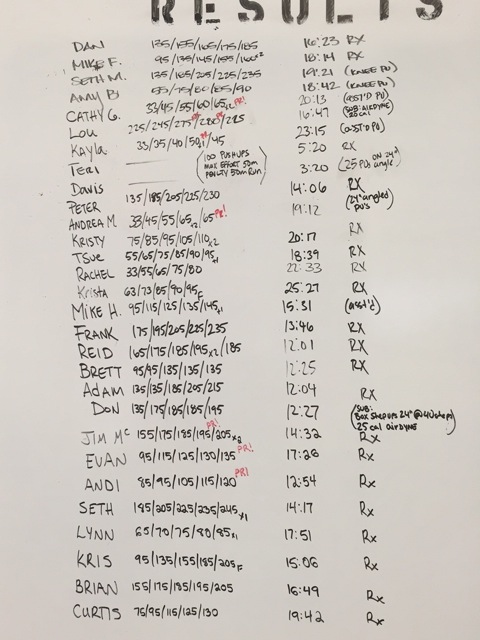 RESULTS
DAN 135/155/165/175/185 16:23 RX
MIKE F. 95/135/145/155/160x2 18:14 RX
SETH M. 135/165/205/225/235 19:21 (KNEE PU)
AMY B 55/75/80/85/90 18:42 (KNEE PU)
CATHY G. 33/45/55/60/65x2 PR! 20:13 (ASST'D PU)
LOU 225/245/275/280/285 PR 16:47 (SUB: AIRDYNE 25 CAL)
Kayla 33/35/40/50x1/45 PR 23:15 (ASST'D PU)
TERI (100 PUSHUPS MAX EFFORT 50m PENALTY 50m Run) 5:20 RX
Davis 3:20 (25 PUs ON 24" angle)
PETER 135/185/205/225/230 14:06 RX
ANDREA M 33/45/55/65x2/65 PR! 19:12 (24" angled PU's)
KRISTY 75/85/95/105/110x2 20:17 RX
TSUE 55/65/75/85/90/95x1 18:39 RX
RACHEL 33/55/65/75/80 22:33 RX
Krista 63/73/85/90/95F 25:27 RX
MIKE H. 95/115/125/135/145x1 15:31 (asst'd)
FRANK 175/195/205/225/235 13:46 RX
REID 165/175/185/195x2/185 12:01 RX
BRETT 95/95/135/135/135 12:25 RX
Adam 135/135/185/205/215 12:04 RX
DON 135/175/185/185/195 12:27 (SUB: Box Step ups 24" @ 40 steps 25 cal AIRDYNE)
JIM Mc 155/175/185/195/205x2 PR! 14:32 Rx
EVAN 95/115/125/130/135 PR! 17:28 Rx
ANDI 85/95/105/115/120 PR! 12:54 Rx
SETH 185/205/225/235/245x1 14:17 Rx
LYNN 65/70/75/80/85x1 17:51 Rx
KRIS 95/135/155/185/205F 15:06 Rx
BRIAN 155/175/185/195/205 16:49 Rx
CURTIS 75/95/115/125/130 19:42 Rx